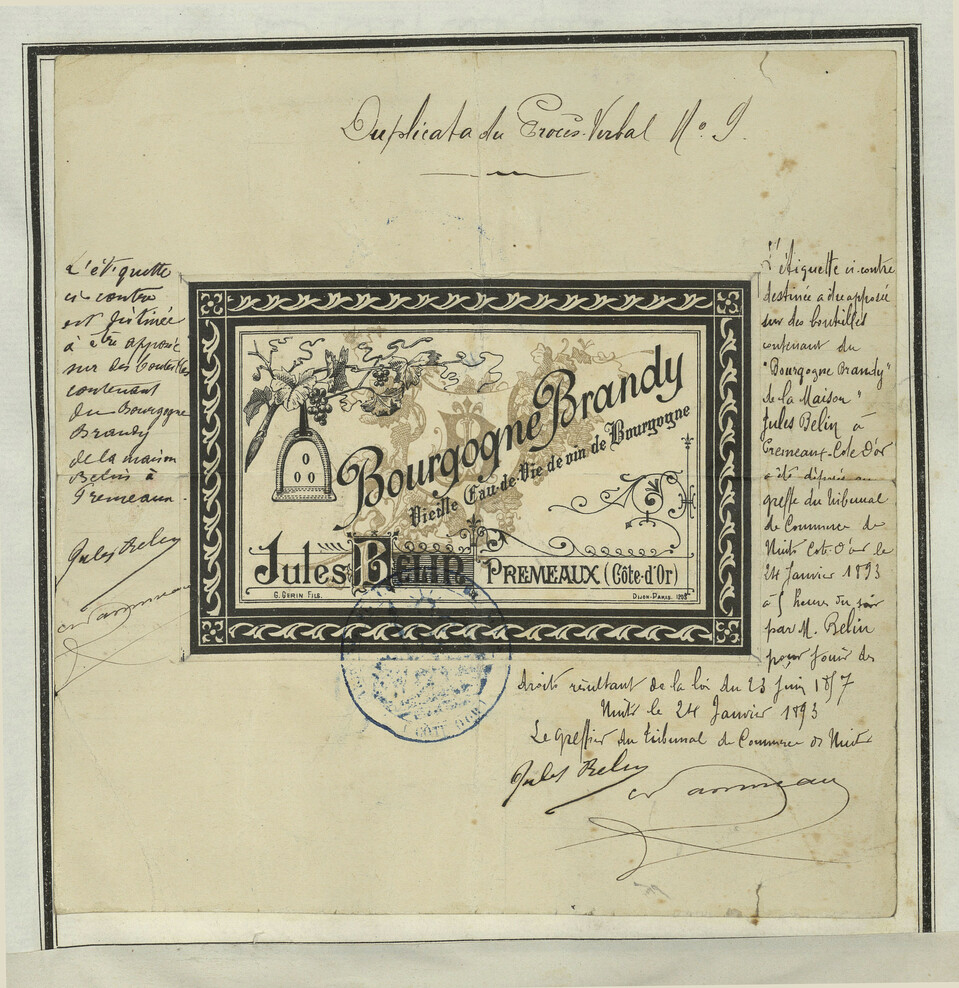 Duplicata du Procès-Verbal No. 9.
L'étiquette
ci-contre
est destinée
à être apposée
sur des bouteilles
contenant
du Bourgogne
Brandy
de la maison
Belin à
Premeaux.
Jules Belin
Bourgogne Brandy
Vieille Eau-de-Vie de vin de Bourgogne
Jules BELIN PREMEAUX (Côte-d'Or)
G. GÉRIN FILS. DIJON-PARIS.
CÔTE D'OR
L'étiquette ci-contre
destinée a être apposée
sur des bouteilles
contenant du
"Bourgogne Brandy"
de la Maison
Jules Belin à
Premeaux-Côte d'or
a été déposée au
greffe du tribunal
de Commerce de
Nuits Côte-d'or le
24 Janvier 1893
à 5 heures du soir
par M. Belin
pour jouir des
droits résultant de la loi du 23 Juin 1857
Nuits le 24 Janvier 1893
Le greffier du tribunal de Commerce de Nuits
Jules Belin